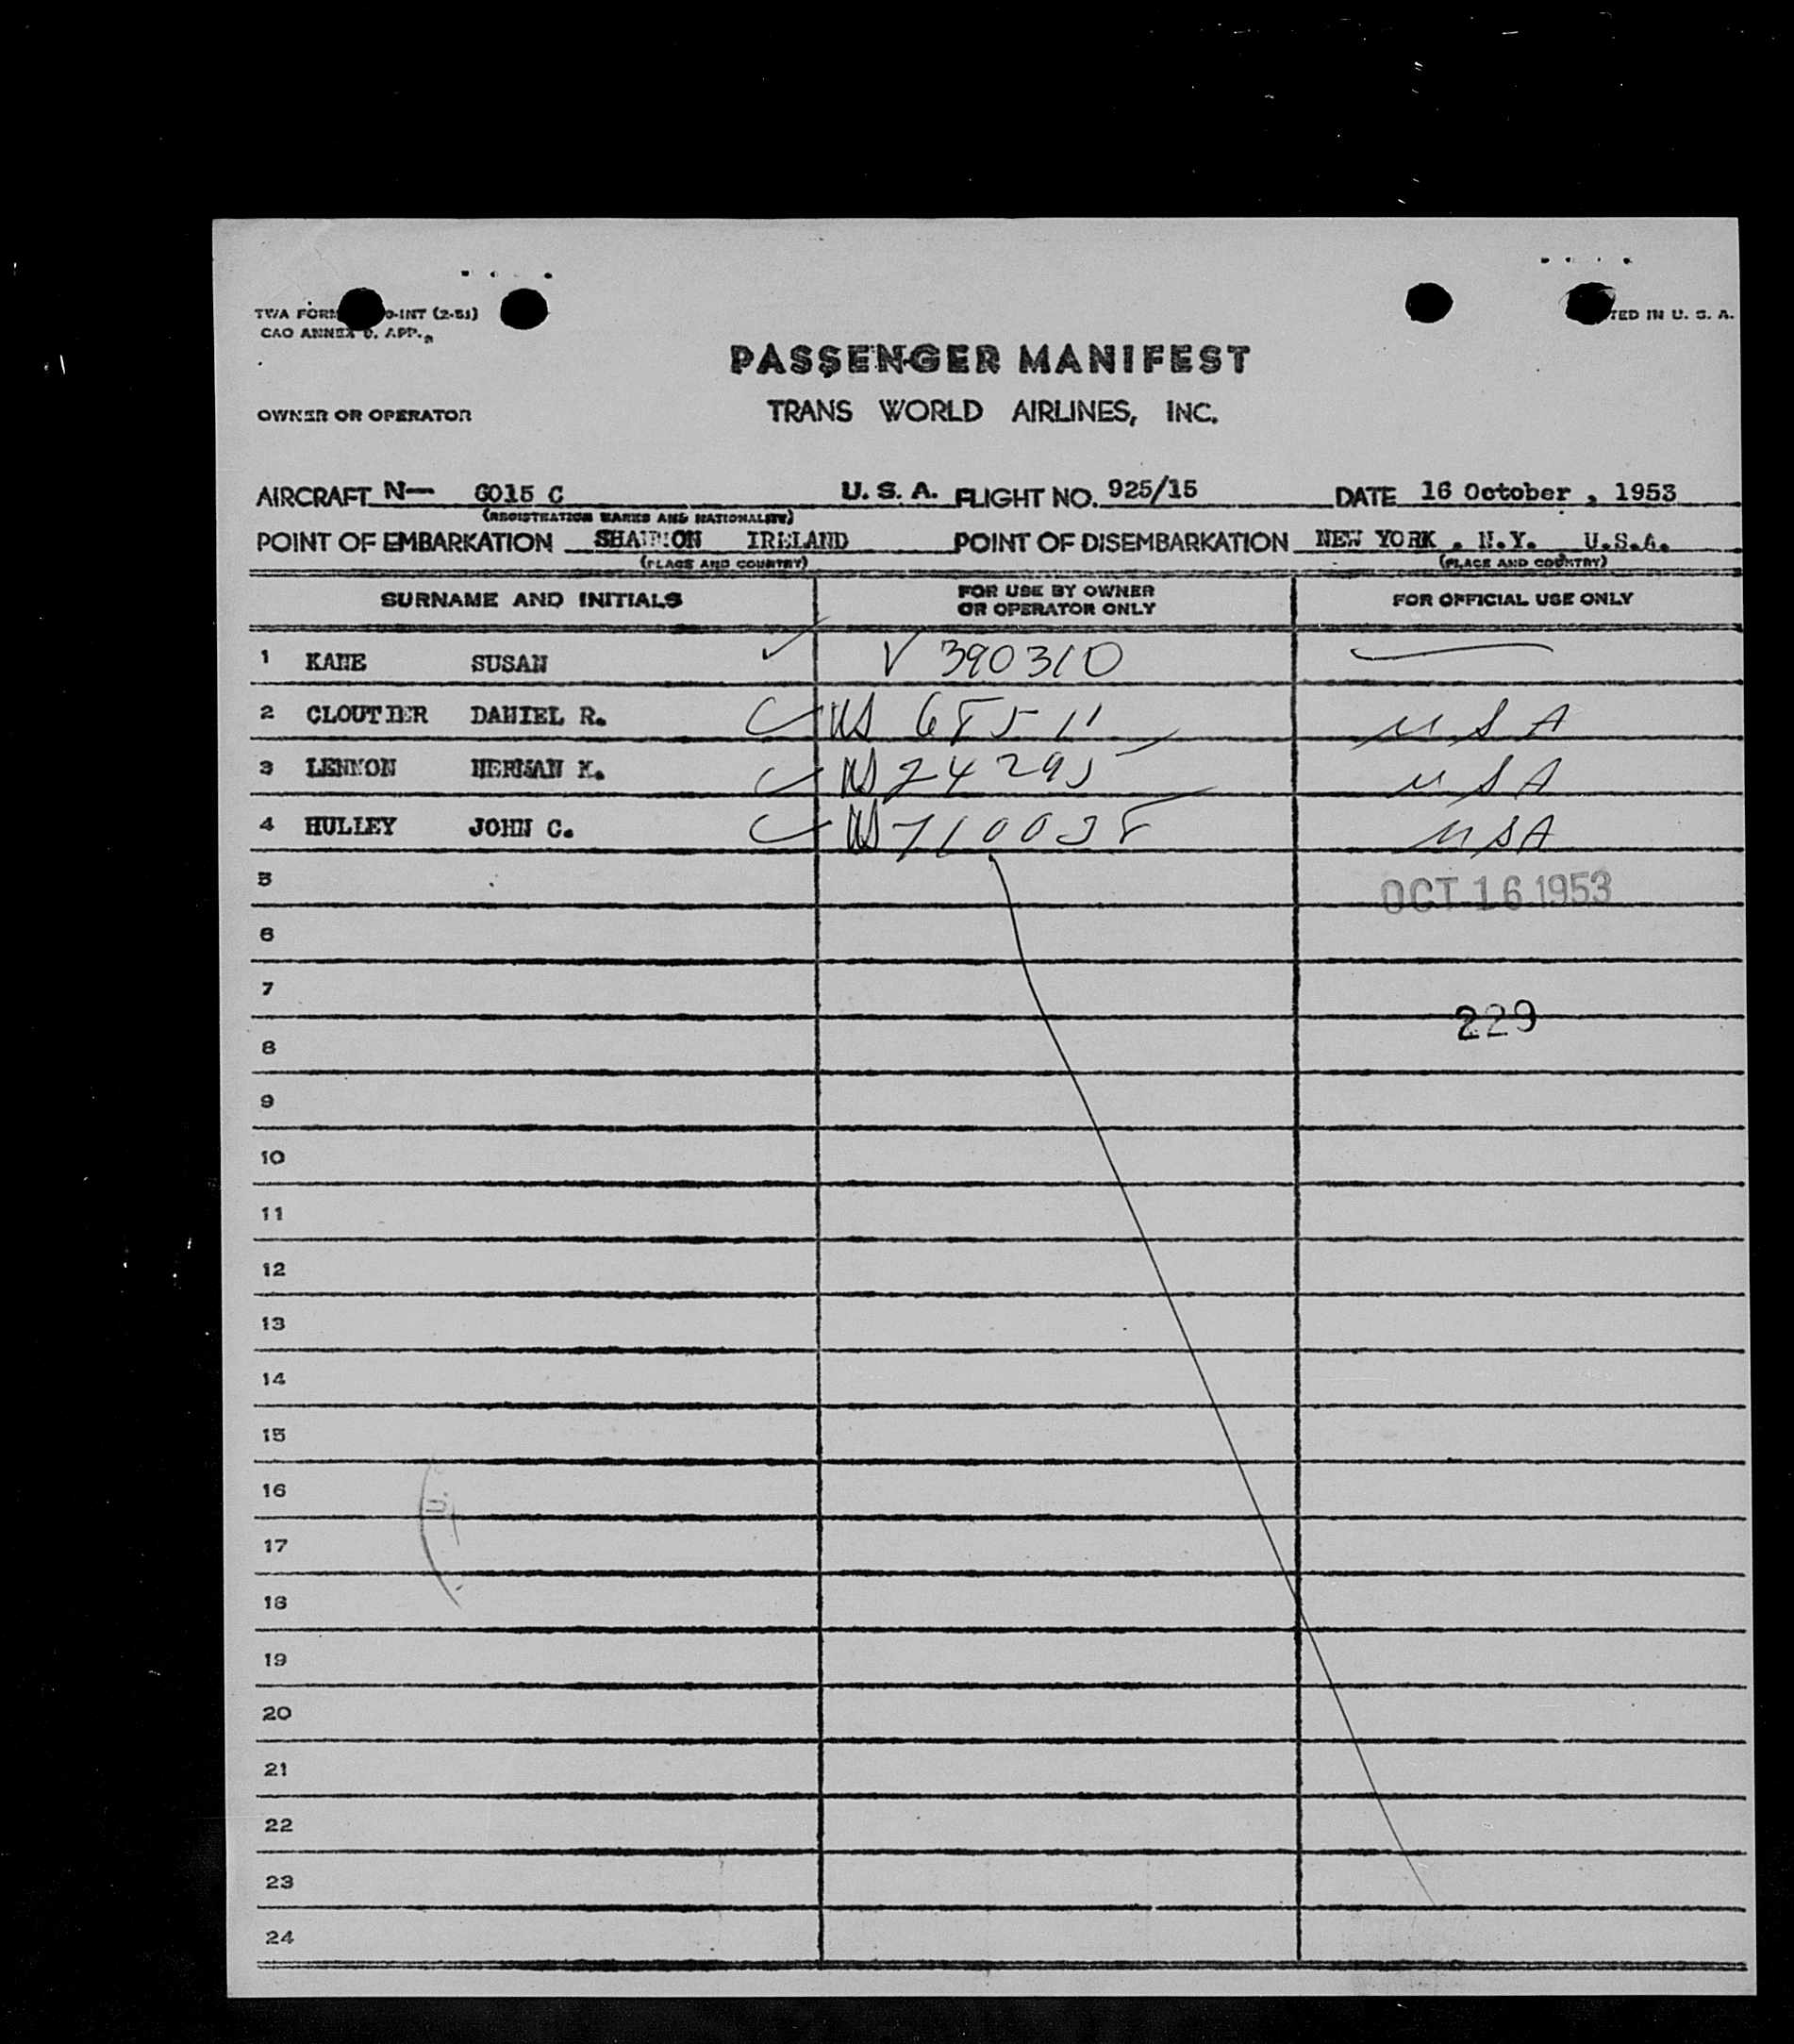 TWA FORM 0-INT (2-51)
CAO ANNEX 9. APP.
TED IN U. S. A.
PASSENGER MANIFEST
OWNER OR OPERATOR TRANS WORLD AIRLINES, INC.
AIRCRAFT N— 6015 C U. S. A. FLIGHT NO. 925/15 DATE 16 October , 1953
(REGISTRATION MARKS AND NATIONALITY)
POINT OF EMBARKATION SHANNON IRELAND POINT OF DISEMBARKATION NEW YORK , N.Y. U.S.A.
(PLACE AND COUNTRY) (PLACE AND COUNTRY)
SURNAME AND INITIALS FOR USE BY OWNER OR OPERATOR ONLY FOR OFFICIAL USE ONLY
1 KANE SUSAN V 390310
2 CLOUTIER DANIEL R. US 68511 USA
3 LENNON HERMAN K. US 24295 USA
4 HULLEY JOHN C. US USA
5 OCT 16 1953
6
7
229
8
9
10
11
12
13
14
15
16
17
18
19
20
21
22
23
24